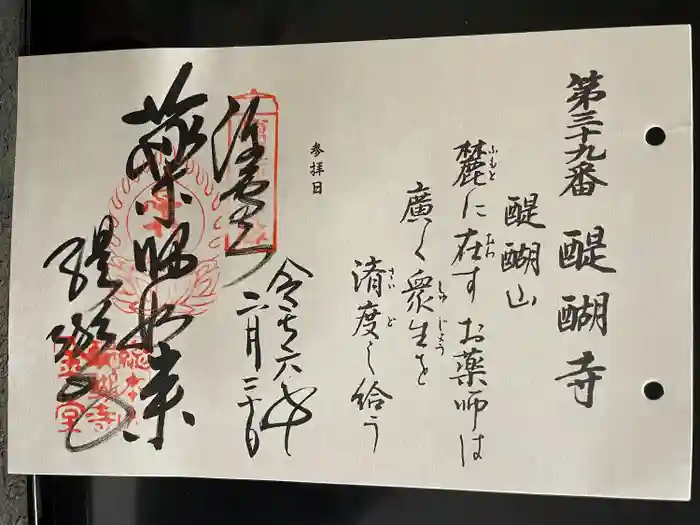 第三十九番 醍醐寺
醍醐山
麓に在すお薬師は
廣く衆生を
済度し給う
参拝日
令和六年
二月二十日
薬師如来
醍醐寺